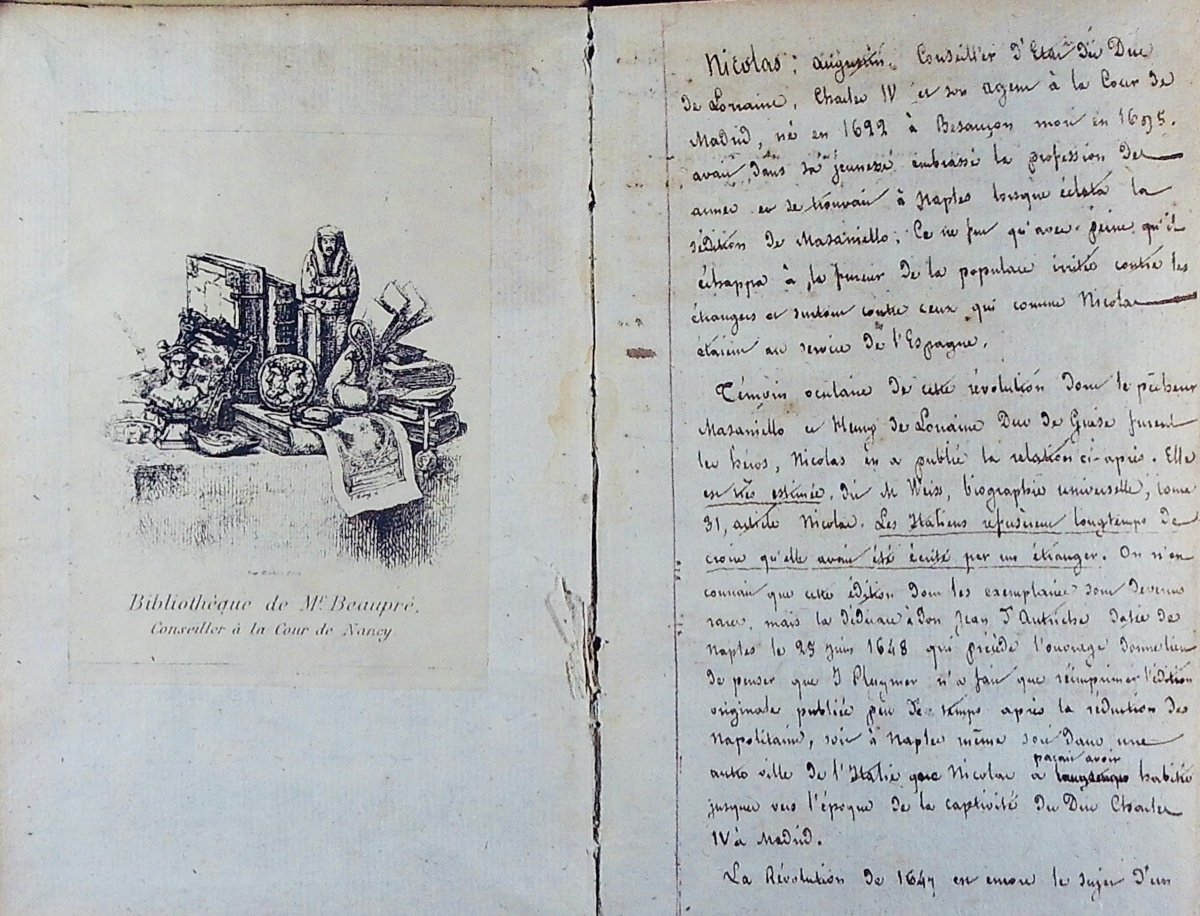 Bibliothèque de Mr. Beaupré,
Conseiller à la Cour de Nancy
Nicolas; augustin. Conseiller d'Etat du Duc
de Lorraine, Charles IV et son agent à la Cour de
Madrid, né en 1622 à Besançon mort en 1695.
avait dans sa jeunesse embrassé la profession des
armes et se trouvait à Naples lorsque éclata la
sédition de Masaniello; Ce ne fut qu'avec peine qu'il
échappa à la fureur de la populace irritée contre les
étrangers et surtout contre ceux qui comme Nicolas
étaient au service de l'Espagne.
Témoin oculaire de cette révolution dont le pêcheur
Masaniello et Henry de Lorraine Duc de Guise furent
les héros, Nicolas en a publié la relation ci-après. Elle
est très estimée, dit M Weiss, biographie universelle, tome
31, article Nicolas. Les Italiens refusèrent longtemps de
croire qu'elle avait été écrite par un étranger. On n'en
connait que cette édition dont les exemplaires sont devenus
rares, mais la dédicace à Don Jean d'Autriche datée de
Naples le 25 juin 1648 qui précède l'ouvrage donne lieu
de penser que J Pluymer n'a fait que réimprimer l'édition
originale publiée peu de temps après la réduction des
Napolitains, soit à Naples même soit dans une
autre ville de l'Italie que Nicolas a longtemps habitée
parait avoir
jusques vers l'époque de la captivité du Duc Charles
IV à Madrid.
La Révolution de 1647 est encore le sujet d'un